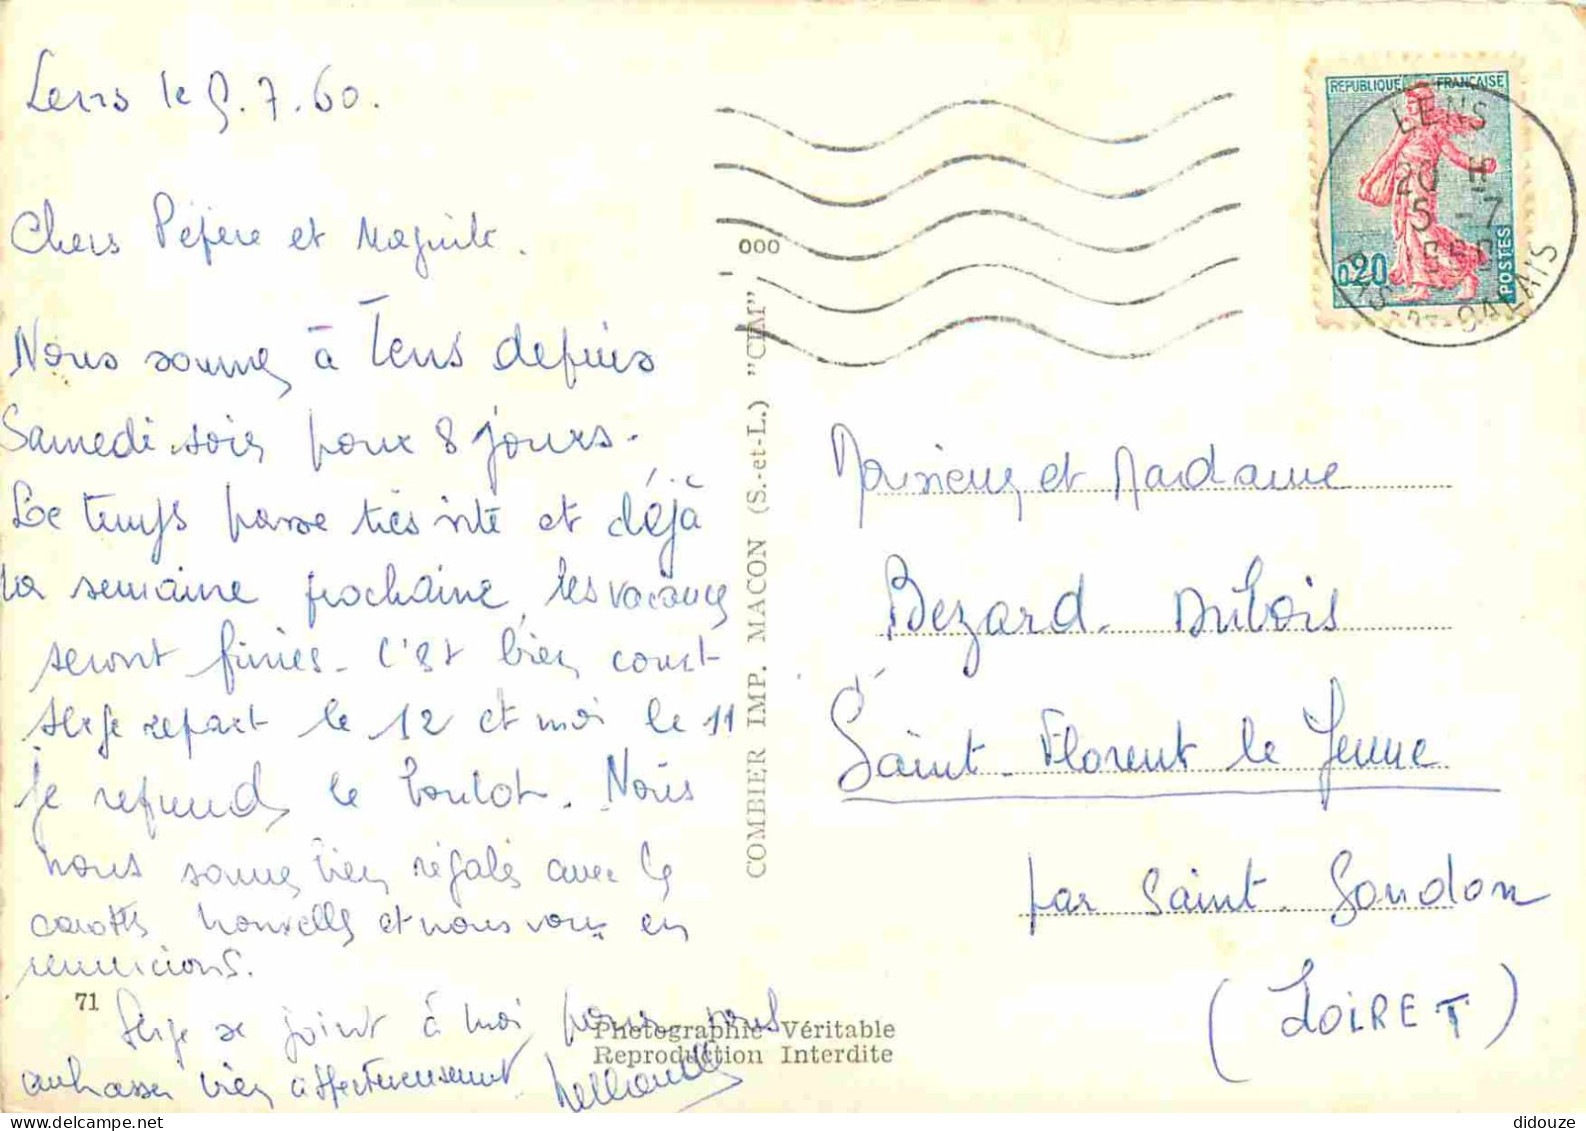 Lens le 5.7.60.
Chers Pépère et
Nous sommes à Lens depuis
Samedi soir pour 8 jours.
Le temps passe très vite et déjà
la semaine prochaine, les vacances
seront finies - C'est bien court
Serge repart le 12 et moi le 11
je reprends le boulot. Nous
nous sommes bien régalés avec les
carottes nouvelles et nous vous en
remercions.
Serge se joint à moi pour vous
embrasser bien affectueusement
71
Photographie Véritable
Reproduction Interdite
COMBIER IMP. MACON (S.-et-L.) "CIM"
000
REPUBLIQUE FRANÇAISE
0.20
POSTES
LENS
20 H
5 -7
1960
PAS-DE-CALAIS
Monsieur et Madame
Bezard. Dubois
Saint-Florent le Jeune
par Saint. Gondon
(LOIRET)
didouze